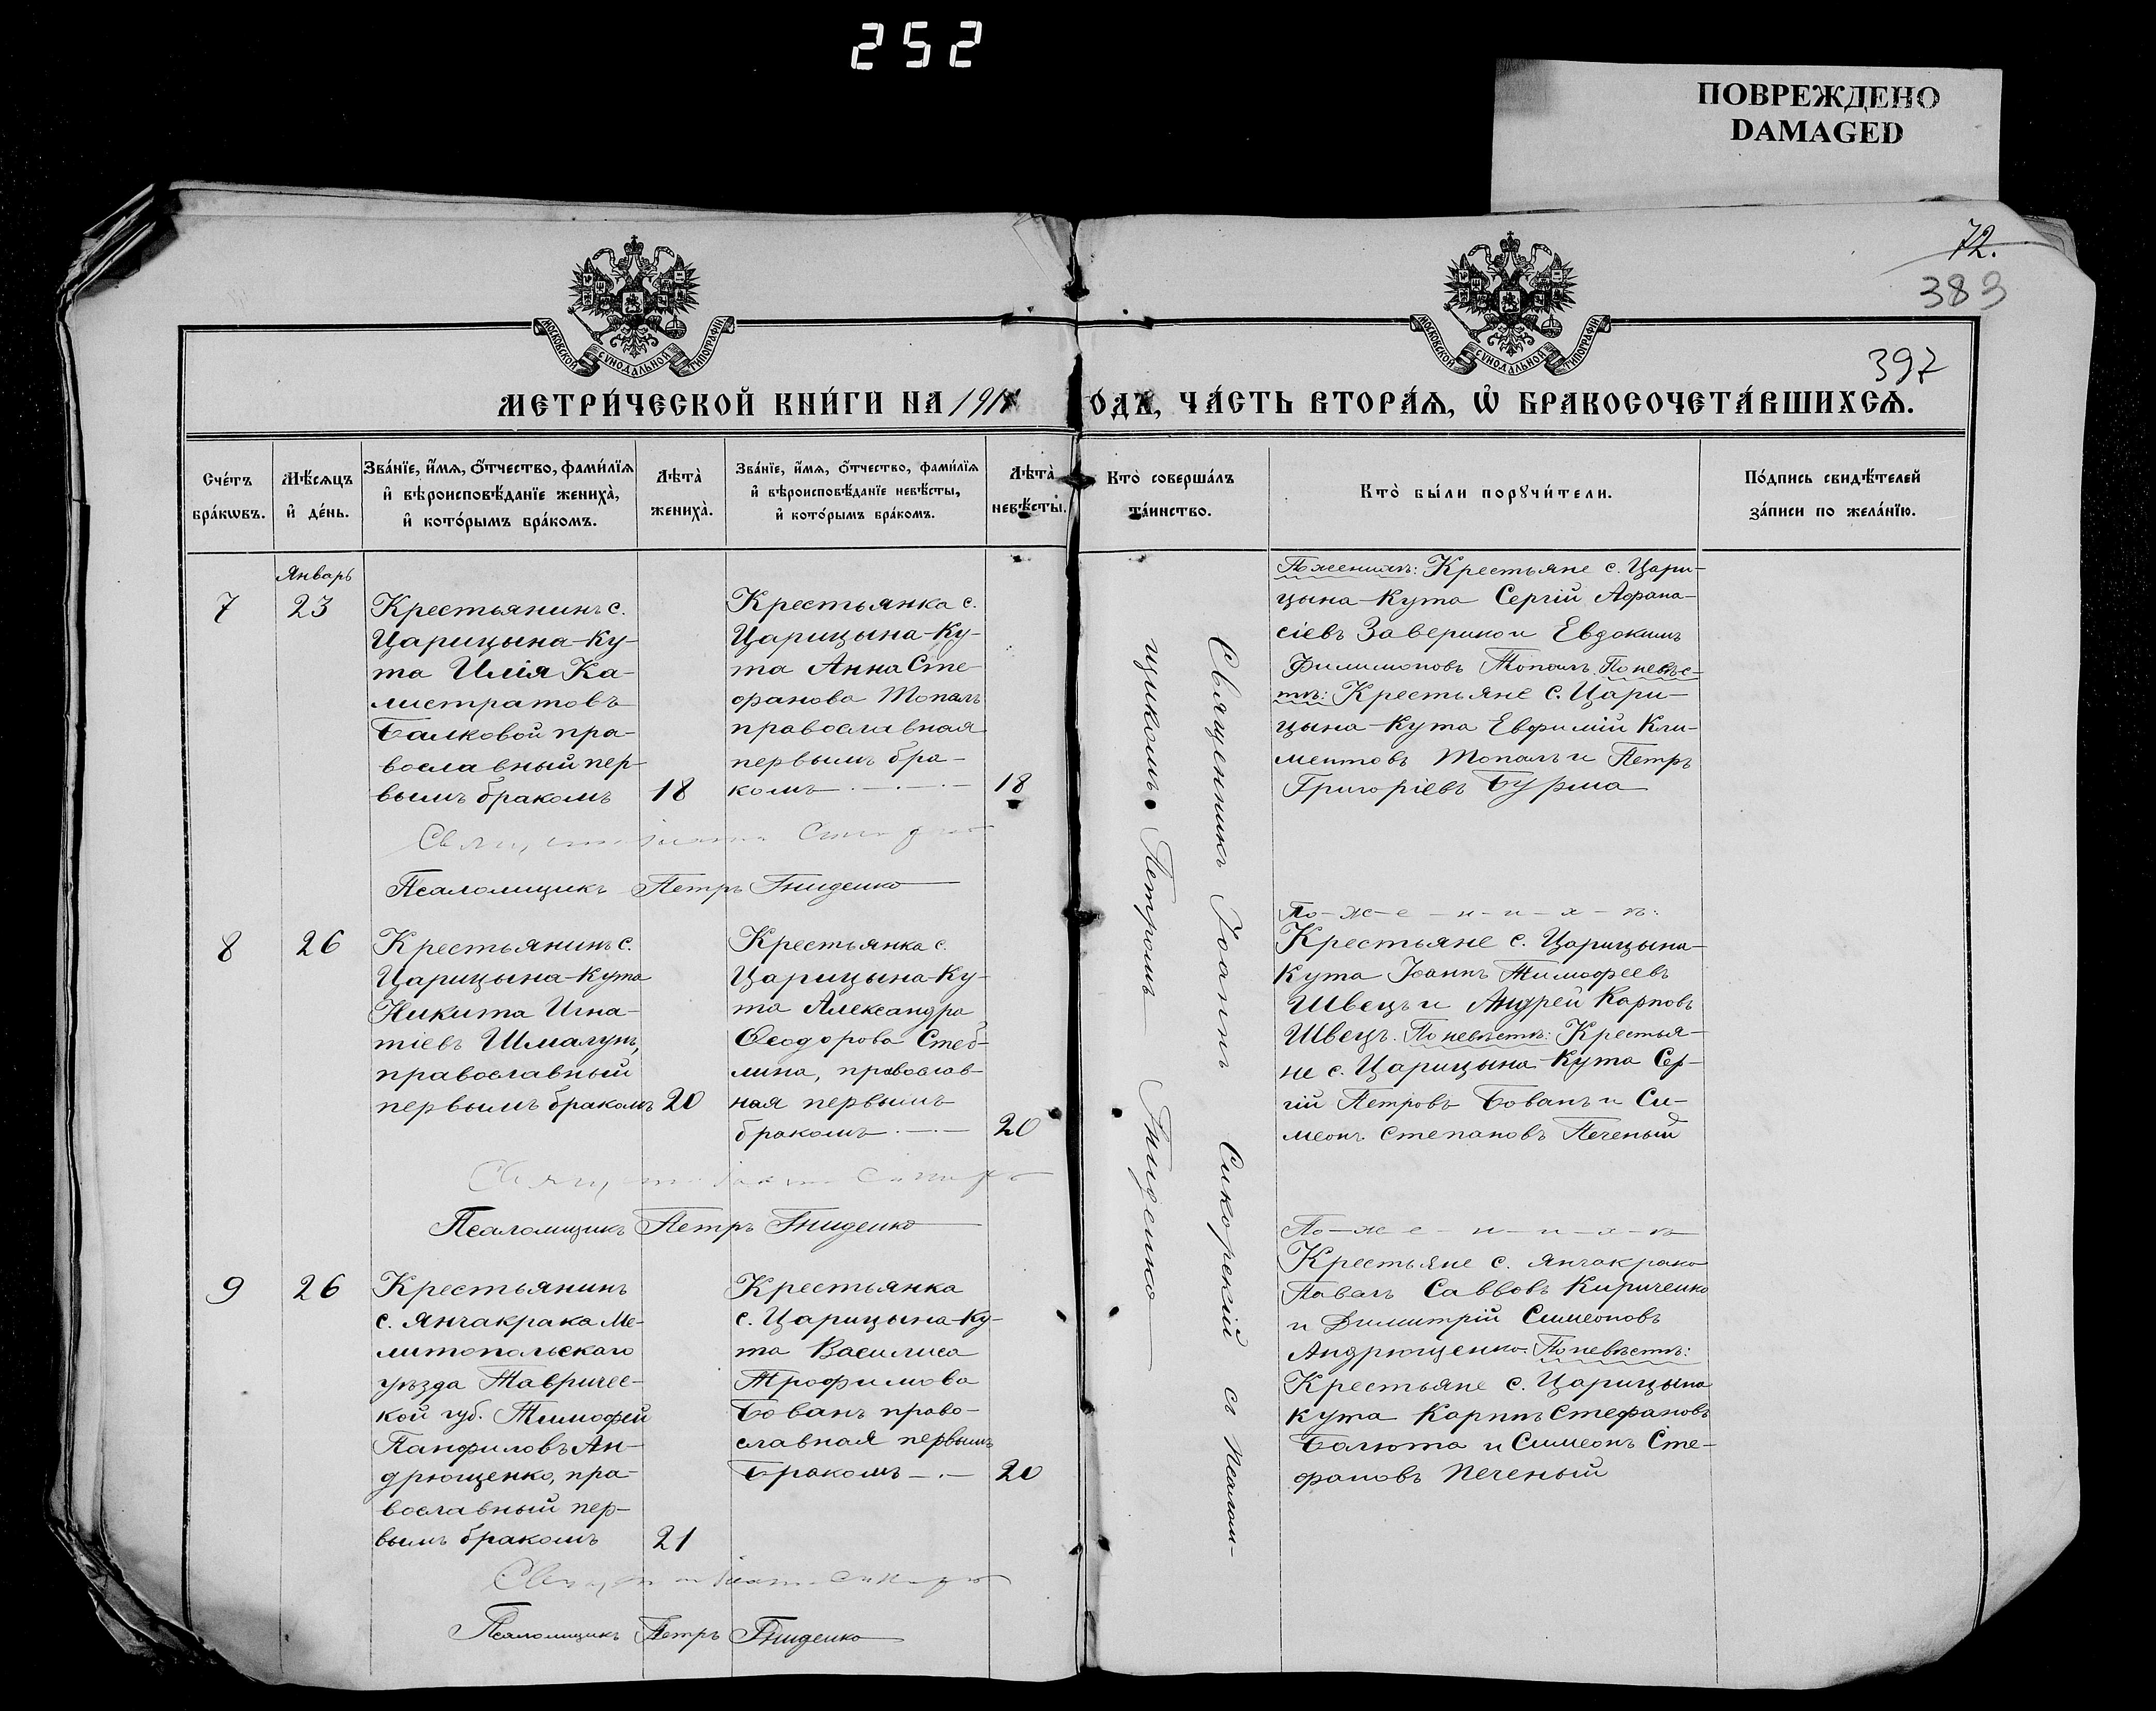 252
ПОВРЕЖДЕНО
DAMAGED
72.
389
397
МОСКОВСКОЙ СѴНОДАЛЬНОЙ ТИПОГРАФІИ
МОСКОВСКОЙ СѴНОДАЛЬНОЙ ТИПОГРАФІИ
МЕТРИ́ЧЕСКОЙ КНИ́ГИ НА 191 ОДЪ, ЧА́СТЬ ВТОРА́Ѧ, Ѡ҆ БРАКОСОЧЕТА́ВШИХСѦ.
Сче́тъ
бра́кѡвъ.
Мѣ́сѧцъ
и҆ де́нь.
Зва́нїе, и҆́мѧ, ѻ҆́тчество, фами́лїѧ
и҆ вѣроисповѣ́данїе жениха̀,
и҆ кото́рымъ бра́комъ.
Лѣта̀
жениха̀.
Зва́нїе, и҆́мѧ, ѻ҆́тчество, фами́лїѧ
и҆ вѣроисповѣ́данїе невѣ́сты,
и҆ кото́рымъ бра́комъ.
Лѣта̀
невѣ́сты.
Кто̀ соверша́лъ
та́инство.
Кто̀ бы́ли порꙋчи́тели.
По́дпись свидѣ́телей
за́писи по жела́нїю.
Январь
7
23
Крестьянинъ с.
Царицына-Ку-
та Илія Ка-
листратовъ
Балковой пра-
вославный пер-
вымъ бракомъ
18
Крестьянка с.
Царицына-Ку-
та Анна Сте-
фанова Топалъ
православная
первымъ бра-
комъ
18
Псаломщикъ Петръ Гниденко
По женихѣ: Крестьяне с. Цари-
цына-Кута Сергій Афана-
сіевъ Заверико и Евдокимъ
Филимоновъ Топалъ. По невѣс-
тѣ: Крестьяне с. Цари-
цына-Кута Евфимій Кли-
ментовъ Топалъ и Петръ
Григоріевъ Бурма
8
26
Крестьянинъ с.
Царицына-Кута
Никита Игна-
тіевъ Шмалунъ,
православный
первымъ бракомъ
20
Крестьянка с.
Царицына-Ку-
та Александра
Ѳеодорова Стеб-
лина, православ-
ная первымъ
бракомъ
20
Псаломщикъ Петръ Гниденко
По-ж-е-н-и-х-ѣ:
Крестьяне с. Царицына-
Кута Іоаннъ Тимофеевъ
Швецъ и Андрей Карповъ
Швецъ. По невѣстѣ: Крестья-
не с. Царицына-Кута Сер-
гій Петровъ Бованъ и Си-
меонъ Степановъ Печеный
9
26
Крестьянинъ
с. Янчакрака Ме-
литопольскаго
уѣзда Тавричес-
кой губ. Тимофей
Панфиловъ Ан-
дрющенко, пра-
вославный пер-
вымъ бракомъ
21
Крестьянка
с. Царицына-Ку-
та Василиса
Трофимова
Бованъ право-
славная первымъ
бракомъ
20
Псаломщикъ Петръ Гниденко
По-ж-е-н-и-х-ѣ
Крестьяне с. Янчакрака
Павелъ Саввовъ Кириченко
и Димитрій Симеоновъ
Андрющенко. По невѣстѣ:
Крестьяне с. Царицына
Кута Карпъ Стефановъ
Балюта и Симеонъ Сте-
фановъ Печеный
Священникъ Іоаннъ Сикорскій съ псалом-
щикомъ Петромъ Гниденко